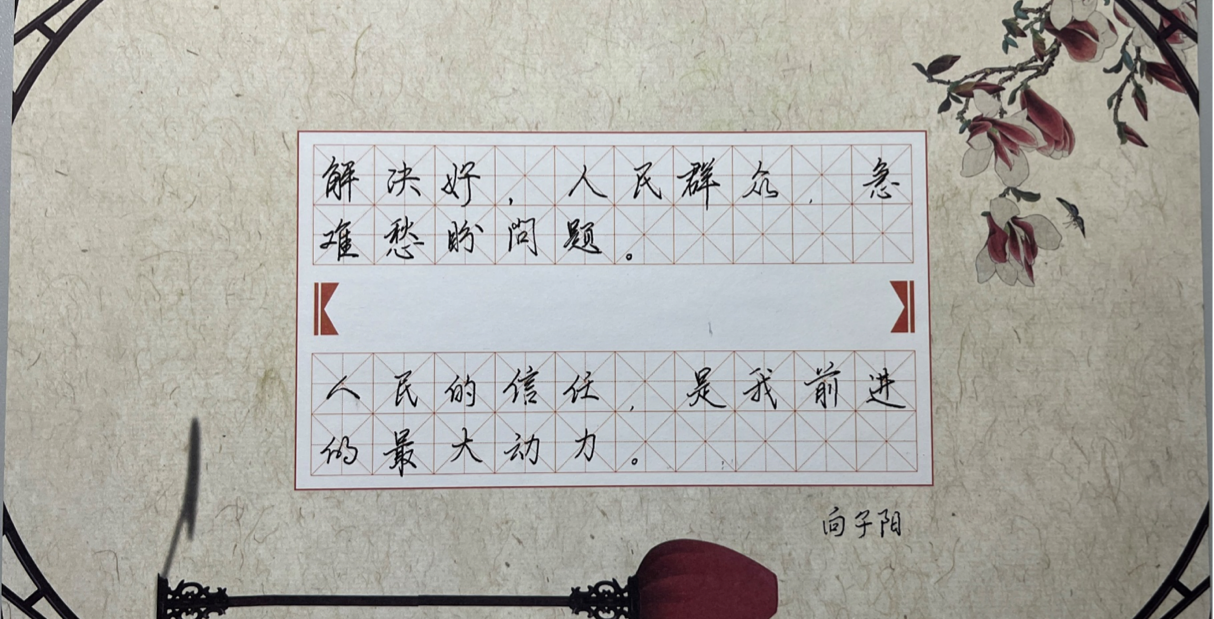 解决好，人民群众，急
难愁盼问题。
人民的信任，是我前进
的最大动力。
向子阳